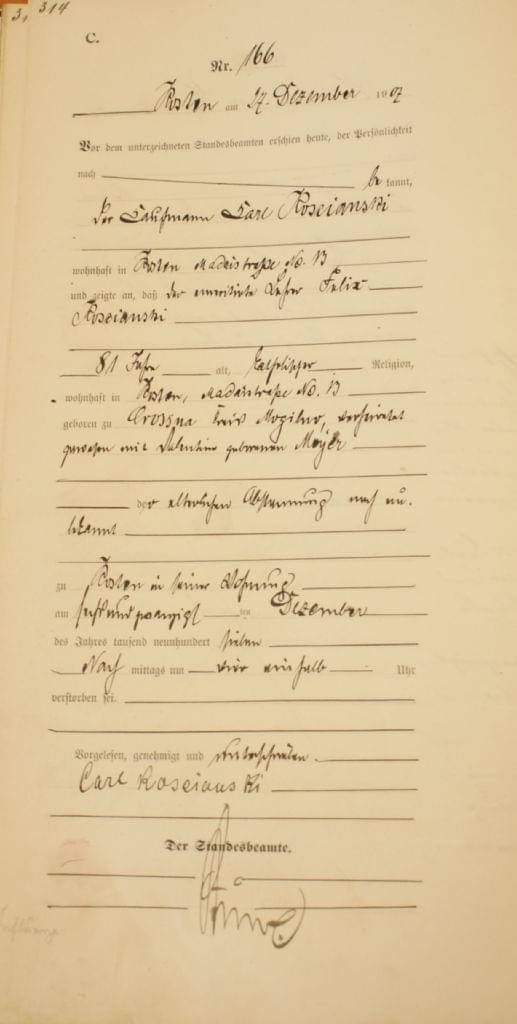 314
C.
Nr. 166
Kosten am 27. Dezember 1907
Vor dem unterzeichneten Standesbeamten erschien heute, der Persönlichkeit
nach be kannt,
der Kaufmann Carl Koscianski
wohnhaft in Kosten Madaistraße No. 13
und zeigte an, daß der emeritirte Lehrer Felix
Koscianski
81 Jahre alt, katholischer Religion,
wohnhaft in Kosten, Madaistraße No. 13
geboren zu Kreis Mogilno, verheiratet
gewesen mit geborenen Meyer
der elterlichen Abstammung nach un-
bekannt
zu Kosten in seiner Wohnung
am ten Dezember
des Jahres tausend neunhundert sieben
Nach mittags um vier einhalb Uhr
verstorben sei.
Vorgelesen, genehmigt und unterschrieben.
Carl Koscianski
Der Standesbeamte.